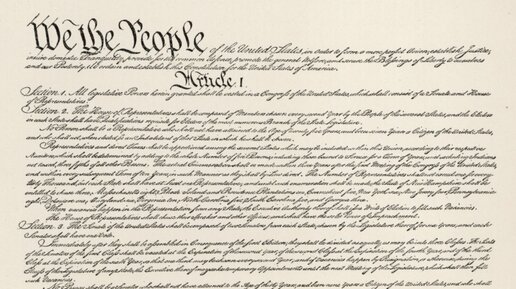 We the People of the United States, in Order to form a more perfect Union, establish Justice,
insure domestic Tranquility, provide for the common defence, promote the general Welfare, and secure the Blessings of Liberty to ourselves
and our Posterity, do ordain and establish this Constitution for the United States of America.
Article I
Section 1. All legislative Powers herein granted shall be vested in a Congress of the United States, which shall consist of a Senate and House
of Representatives.
Section 2. The House of Representatives shall be composed of Members chosen every second Year by the People of the several States, and the Electors
in each State shall have the Qualifications requisite for Electors of the most numerous Branch of the State Legislature.
No Person shall be a Representative who shall not have attained to the Age of twenty five Years, and been seven Years a Citizen of the United States,
and who shall not, when elected, be an Inhabitant of that State in which he shall be chosen.
Representatives and direct Taxes shall be apportioned among the several States which may be included within this Union, according to their respective
Numbers, which shall be determined by adding to the whole Number of free Persons, including those bound to Service for a Term of Years, and excluding Indians
not taxed, three fifths of all other Persons. The actual Enumeration shall be made within three Years after the first Meeting of the Congress of the United States,
and within every subsequent Term of ten Years, in such Manner as they shall by Law direct. The Number of Representatives shall not exceed one for every
thirty Thousand, but each State shall have at Least one Representative; and until such enumeration shall be made, the State of New Hampshire shall be
entitled to chuse three, Massachusetts eight, Rhode Island and Providence Plantations one, Connecticut five, New York six, New Jersey four, Pennsylvania
eight, Delaware one, Maryland six, Virginia ten, North Carolina five, South Carolina five, and Georgia three.
When vacancies happen in the Representation from any State, the Executive Authority thereof shall issue Writs of Election to fill such Vacancies.
The House of Representatives shall chuse their Speaker and other Officers; and shall have the sole Power of Impeachment.
Section 3. The Senate of the United States shall be composed of two Senators from each State, chosen by the Legislature thereof, for six Years; and each
Senator shall have one Vote.
Immediately after they shall be assembled in Consequence of the first Election, they shall be divided as equally as may be into three Classes. The Seats
of the Senators of the first Class shall be vacated at the Expiration of the second Year, of the second Class at the Expiration of the fourth Year, and of the third
Class at the Expiration of the sixth Year, so that one third may be chosen every second Year; and if Vacancies happen by Resignation, or otherwise, during the
Recess of the Legislature of any State, the Executive thereof may make temporary Appointments until the next Meeting of the Legislature, which shall then fill
such Vacancies.
No Person shall be a Senator who shall not have attained to the Age of thirty Years, and been nine Years a Citizen of the United States, and who shall not,